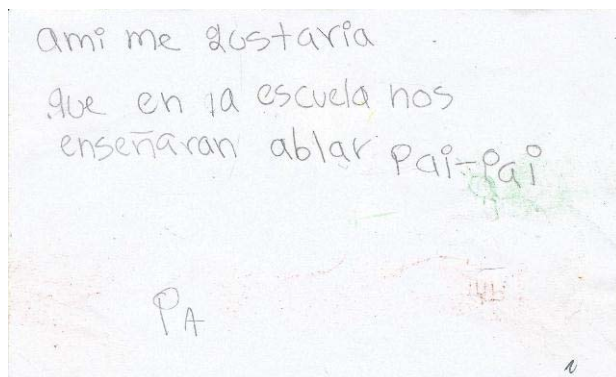 ami me gustaria
que en la escuela nos
enseñaran ablar Pai-Pai
PA